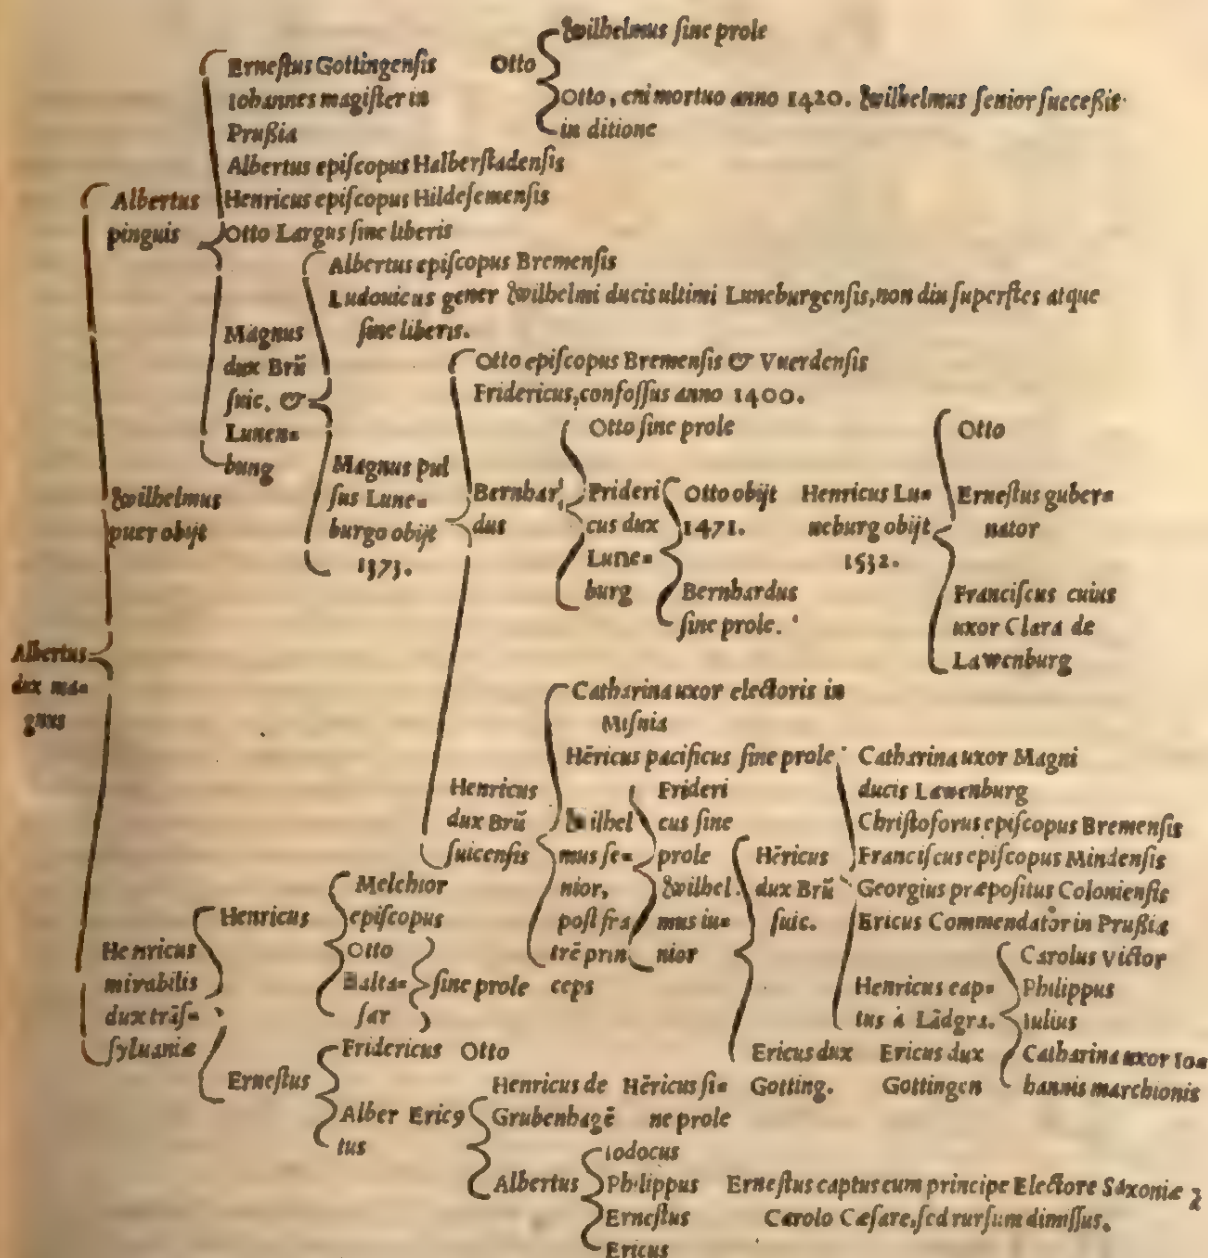 Wilhelmus sine prole
Ernestus Gottingensis Otto
Iohannes magister in
Otto, cui mortuo anno 1420. Wilhelmus senior succeßit
Prußia
in ditione
Albertus episcopus Halberstadensis
Albertus
pinguis
Henricus episcopus Hildesemensis
Otto Largus sine liberis
Albertus episcopus Bremensis
Ludouicus gener Wilhelmi ducis ultimi Luneburgensis, non diu superstes atque
sine liberis.
Magnus
dux Brũ
suic. &
Lunen=
bung
Otto episcopus Bremensis & Vuerdensis
Fridericus, confossus anno 1400.
Wilhelmus
puer obijt
Magnus pul
sus Lune=
burgo obijt
1373.
Bernhar
dus
Otto sine prole
Frideri
cus dux
Lune=
burg
Otto obijt
1471.
Bernhardus
sine prole.
Henricus Lu=
neburg obijt
1532.
Otto
Ernestus guber=
nator
Franciscus cuius
uxor Clara de
Lawenburg
Albertus
dux ma=
gnus
Catharina uxor electoris in
Misnia
Hẽricus pacificus sine prole
Henricus
dux Brũ
suicensis
Wilhel
mus se=
nior,
post fra
trẽ prin
ceps
Frideri
cus sine
prole
Wilhel
mus iu=
nior
Hẽricus
dux Brũ
suic.
Catharina uxor Magni
ducis Lawenburg
Christoforus episcopus Bremensis
Franciscus episcopus Mindensis
Georgius præpositus Coloniensis
Ericus Commendator in Prußia
Henricus cap=
tus à Lãdgra.
Carolus Victor
Philippus
Iulius
Catharina uxor Io=
hannis marchionis
Ericus dux
Gotting.
Ericus dux
Gottingen
Henricus
mirabilis
dux trãs=
syluaniæ
Henricus
Melchior
episcopus
Otto
Balta=
sar
sine prole
Ernestus
Fridericus Otto
Alber
tus
Ericꝰ
Henricus de
Grubenhagẽ
Hẽricus si=
ne prole
Albertus
Iodocus
Philippus
Ernestus
Ericus
Ernestus captus cum principe Electore Saxoniæ à
Carolo Cæsare, sed rursum dimissus.